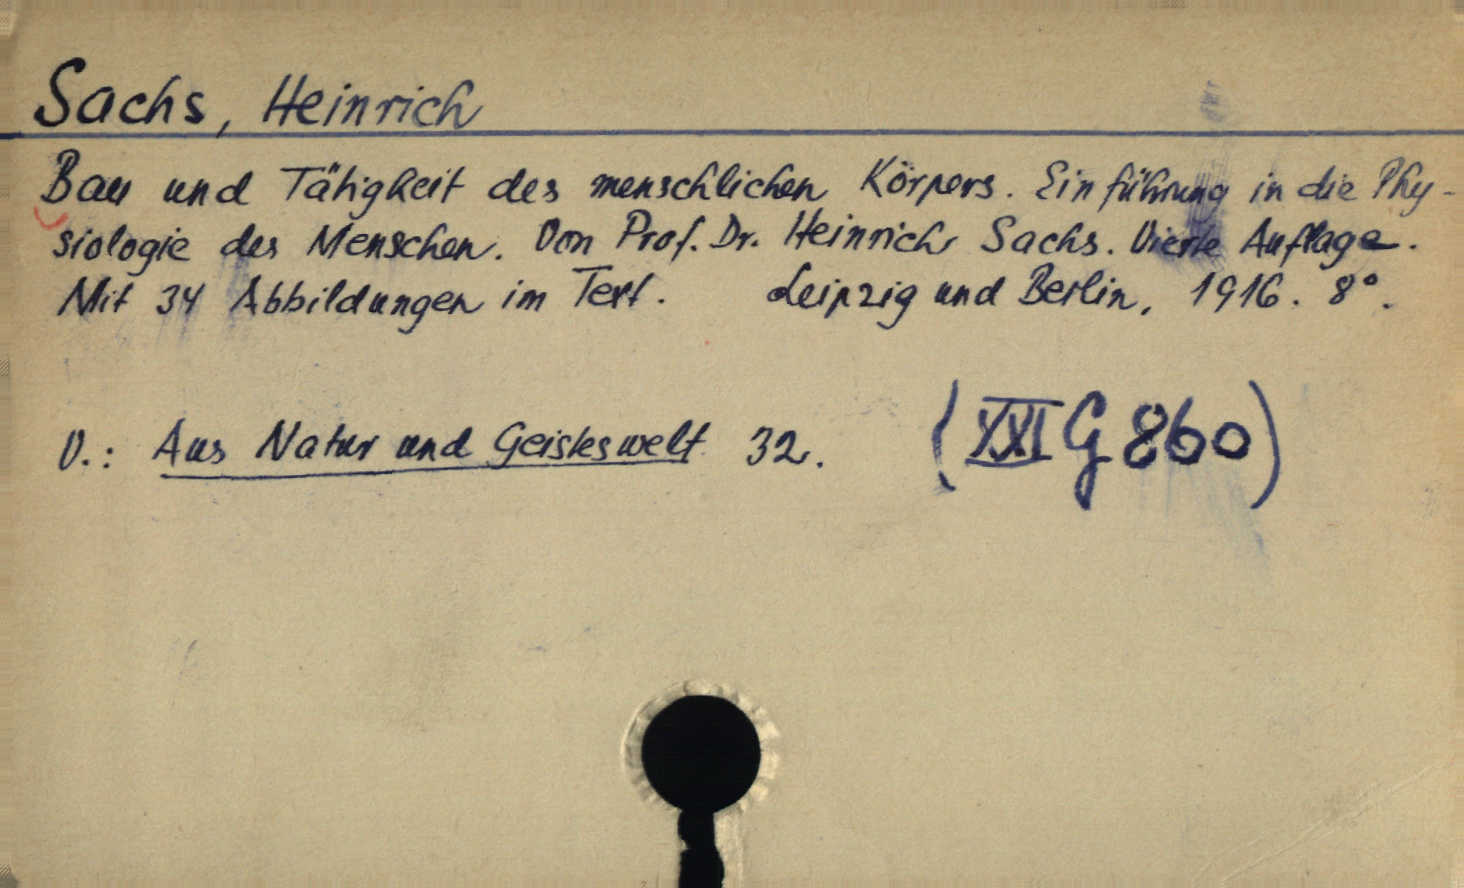 Sachs, Heinrich
Bau und Tätigkeit des menschlichen Körpers. Einführung in die Phy-
siologie des Menschen. Von Prof. Dr. Heinrich Sachs. Vierte Auflage.
Mit 34 Abbildungen im Text. Leipzig und Berlin, 1916. 8°.
V.: Aus Natur und Geisteswelt 32. (XXI G 860)